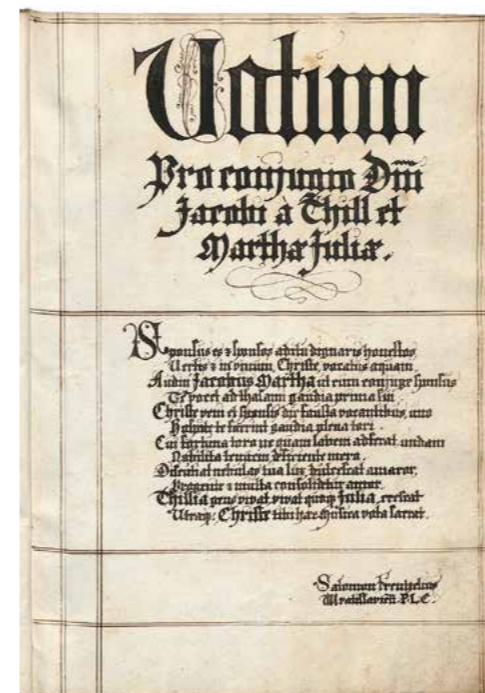 Votum
Pro conjugio Dm̃
Jacobi à Thill et
Marthæ Juliæ.
Sponsus es & sponsos aditu dignaris honestos
Vertis & in vinum, Christe, vocatus aquam
Audin Jacobus Martha ut cum conjuge sponsus
Te vocet ad thalami gaudia prima sui
Christe veni et sponsis dic fausta vocantibus, uno
te gaudia plena tori.
Cui fortuna toro ne quam labem adferat undam
Nobilita tenuem deficiente mero.
Discutiat nebulas tua lux, dulcescat amaror,
Progenie & multa consolidetur amor.
Thillia gens vivat vivat quoque Julia, crescat
Utraque: Christe tibi hæc Musica vota
Salomon Frentzelius
Wratislavien̄. P.L.C.